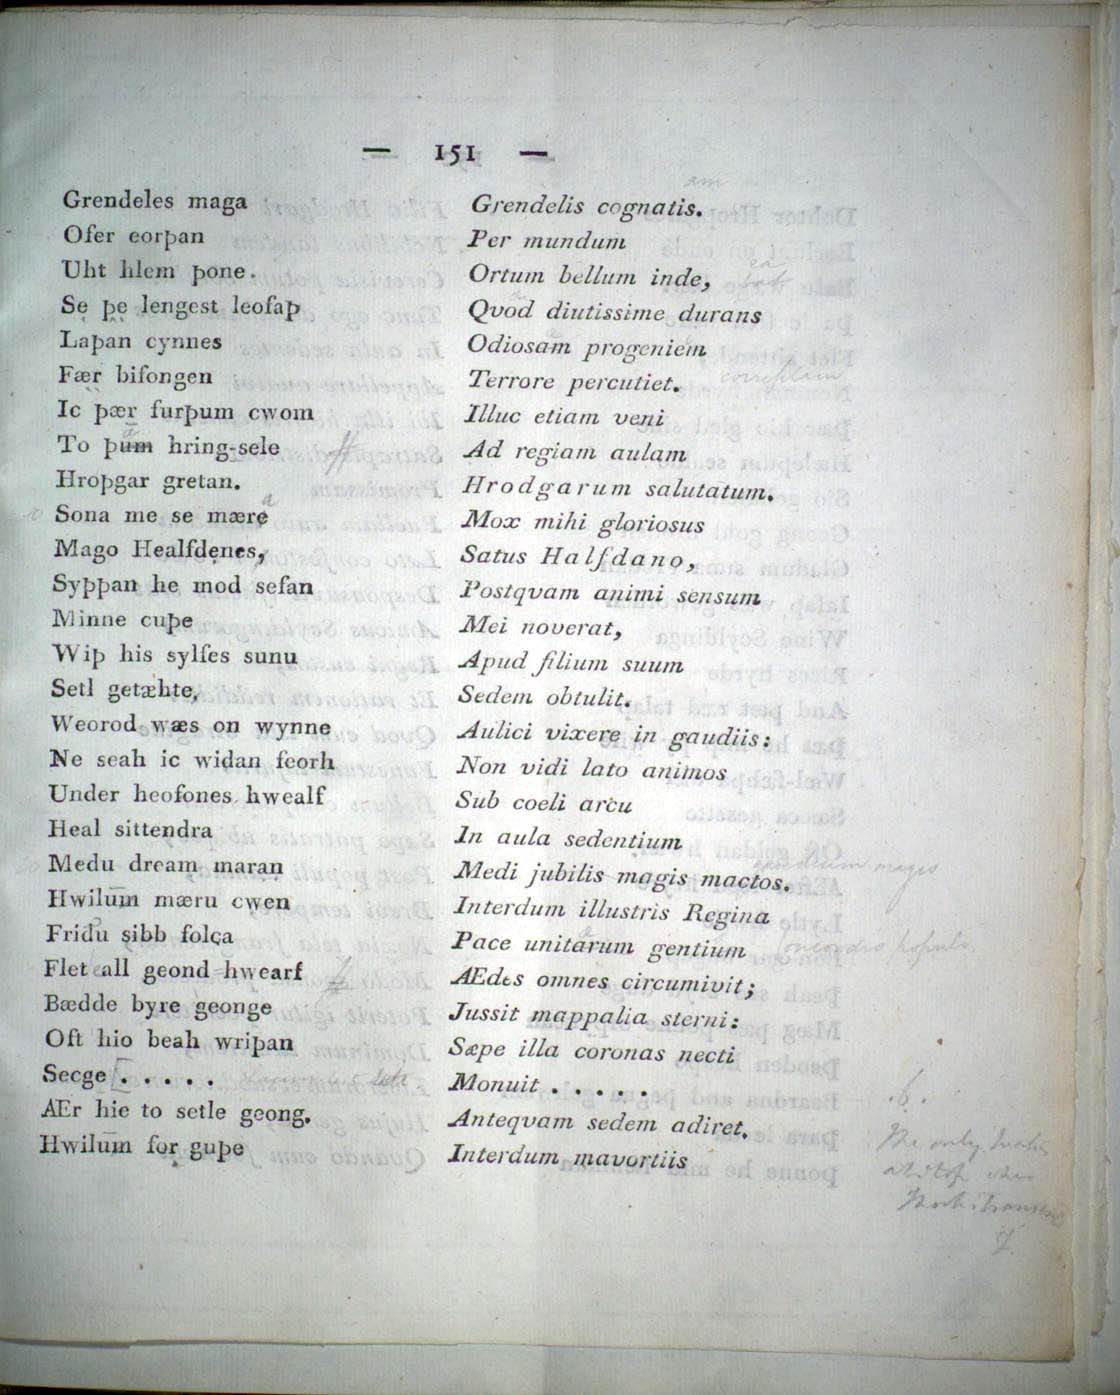 — 151 —
Grendeles maga
Ofer eorþan
Uht hlem þone.
Se þe lengest leofaþ
Laþan cynnes
Fær bifongen
Ic þær furþum cwom
To þum hring-sele
Hroþgar gretan.
Sona me se mære
Mago Healfdenes,
Syþþan he mod sefan
Minne cuþe
Wiþ his sylfes sunu
Setl getæhte,
Weorod wæs on wynne
Ne seah ic widan feorh
Under heofones hwealf
Heal sittendra
Medu dream maran
Hwilum mæru cwen
Fridu sibb folca
Flet all geond hwearf
Bædde byre geonge
Oft hio beah wriþan
Secge . . . . .
AEr hie to setle geong.
Hwilum for guþe
Grendelis cognatis.
Per mundum
Ortum bellum inde,
Qvod diutissime durans
Odiosam progeniem
Terrore percutiet.
Illuc etiam veni
Ad regiam aulam
Hrodgarum salutatum.
Mox mihi gloriosus
Satus Halfdano,
Postqvam animi sensum
Mei noverat,
Apud filium suum
Sedem obtulit.
Aulici vixere in gaudiis:
Non vidi lato animos
Sub coeli arcu
In aula sedentium
Medi jubilis magis mactos.
Interdum illustris Regina
Pace unitarum gentium
AEdes omnes circumivit;
Jussit mappalia sterni:
Sæpe illa coronas necti
Monuit . . . . .
Antequam sedem adiret.
Interdum mavortiis